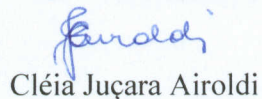 Airoldi
Cléia Juçara Airoldi